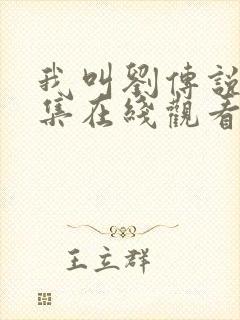 我叫劉傳說
集在綫觀看
王立群